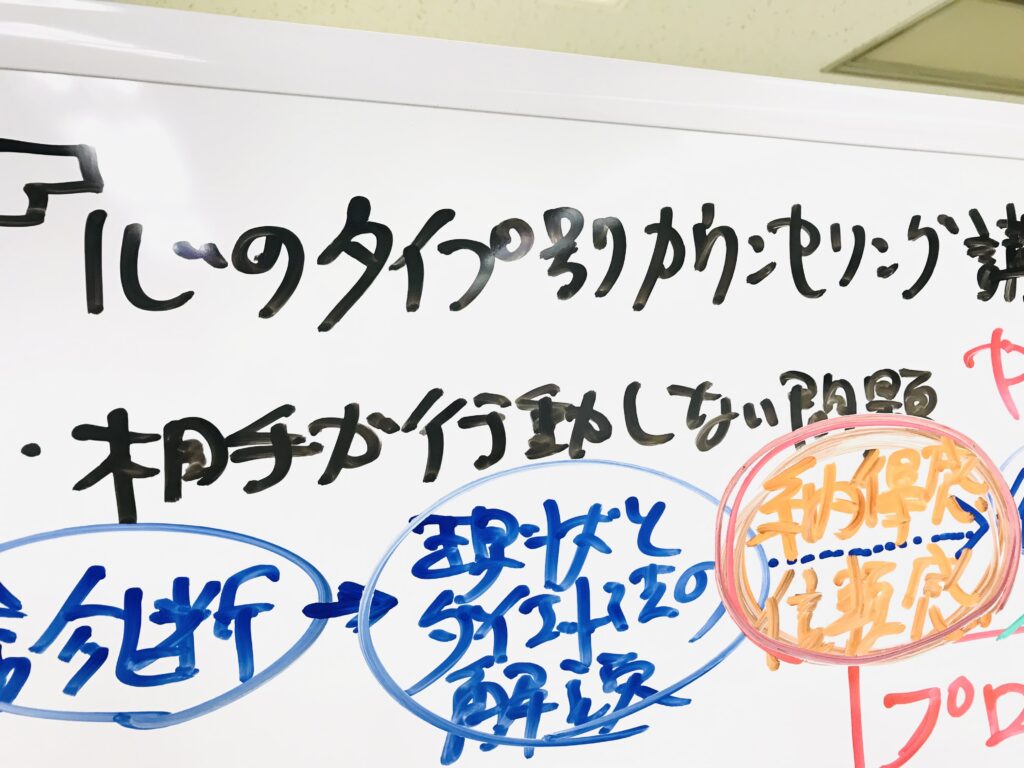 心のタイプ別カウンセリング講
・相手が行動しない問題
診断
現状と
ダイエット法の
解説
納得感
信頼感
プロ